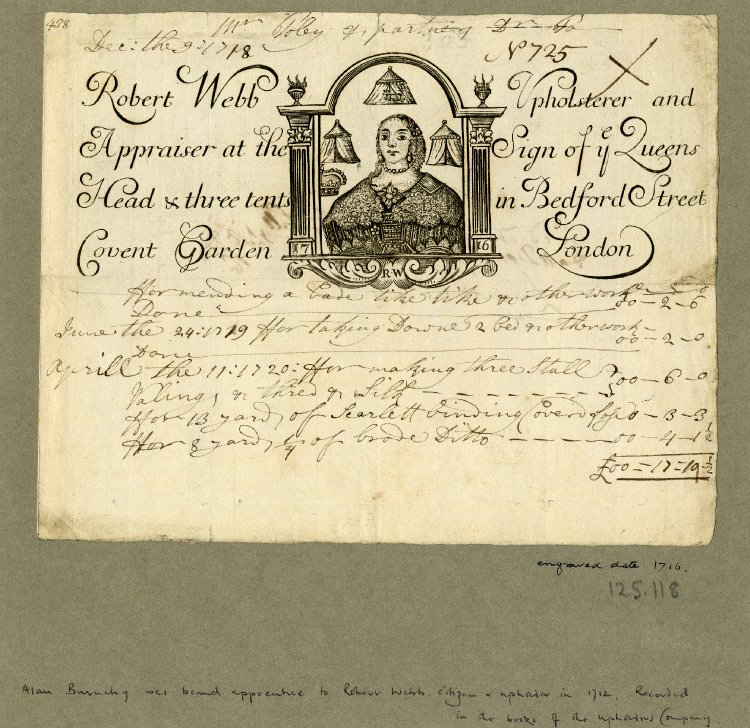 458
Mr Toley & partners Dr to
Dec: the 9: 1718
No 725
Robert Webb Vpholsterer and
Appraiser at the Sign of ye Queens
Head & three tents in Bedford Street
Covent Garden London
17 16
RW
ffor mending a bade like tike & other work
Done 00-2-6
June the 24: 1719 ffor taking Downe 2 bed & other work
Done 00-2-0
Aprill the 11: 1720: ffor making three Stall
& thred & Silk 00-6-0
ffor 13 yards of Scarlett binding 0-3-3
ffor 8 yards 1/4 of brode Ditto 00-4-1½
£00=17=10½
engraved date 1716.
125.118
Alan was bound apprentice to Robert Webb, citizen & upholder in 1712. Recorded
in the books of the Upholders Company.